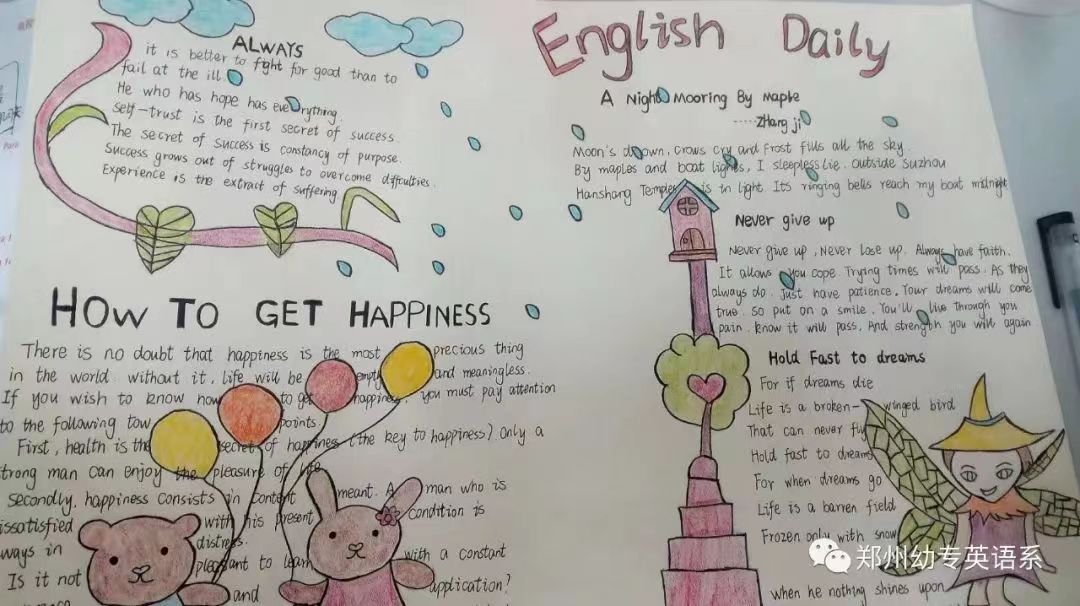 ALWAYS
it is better to fight for good than to
fail at the ill
He who has hope has everything.
Self-trust is the first secret of success.
The secret of success is constancy of purpose.
Success grows out of struggles to overcome difficulties.
Experience is the extract of suffering
HOW TO GET HAPPINESS
There is no doubt that happiness is the most precious thing
in the world. without it, life will be empty and meaningless.
If you wish to know how to get happiness, you must pay attention
to the following tow points.
First, health is the secret of happines (the key to happiness) Only a
trong man can enjoy the pleasure of life
Secondly, happiness consists in content meant. A man who is
issatisfied with his present condition is
ways in distress.
Is it not pleasant to learn with a constant
and application?
English Daily
A Night Mooring By Maple
-----Zhang ji
Moon's down, crows cry and frost fills all the sky.
By maples and boat lights, I sleepless lie. Outside Suzhou
Hanshang Temple is in light. Its ringing bells reach my boat midnight
Never give up
Never give up, Never lose up. Always have faith.
It allows you cope. Trying times will pass. As they
always do. Just have patience. Your dreams will come
true. So put on a smile. You'll live through you
pain. know it will pass. And strength you will again
Hold Fast to dreams
For if dreams die
Life is a broken-winged bird
That can never fly
Hold fast to dreams
For when dreams go
Life is a barren field
Frozen only with snow
when he nothing shines upon
郑州幼专英语系